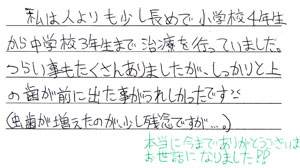 私は人よりも少し長めで小学校4年生
から中学校3年生まで治療を行っていました。
つらい事もたくさんありましたが、しっかりと上
の歯が前に出た事がられしかったです
(虫歯が増えたのが、少し残念ですが…。)
本当に今までありがとうございま
お世話になりました!!